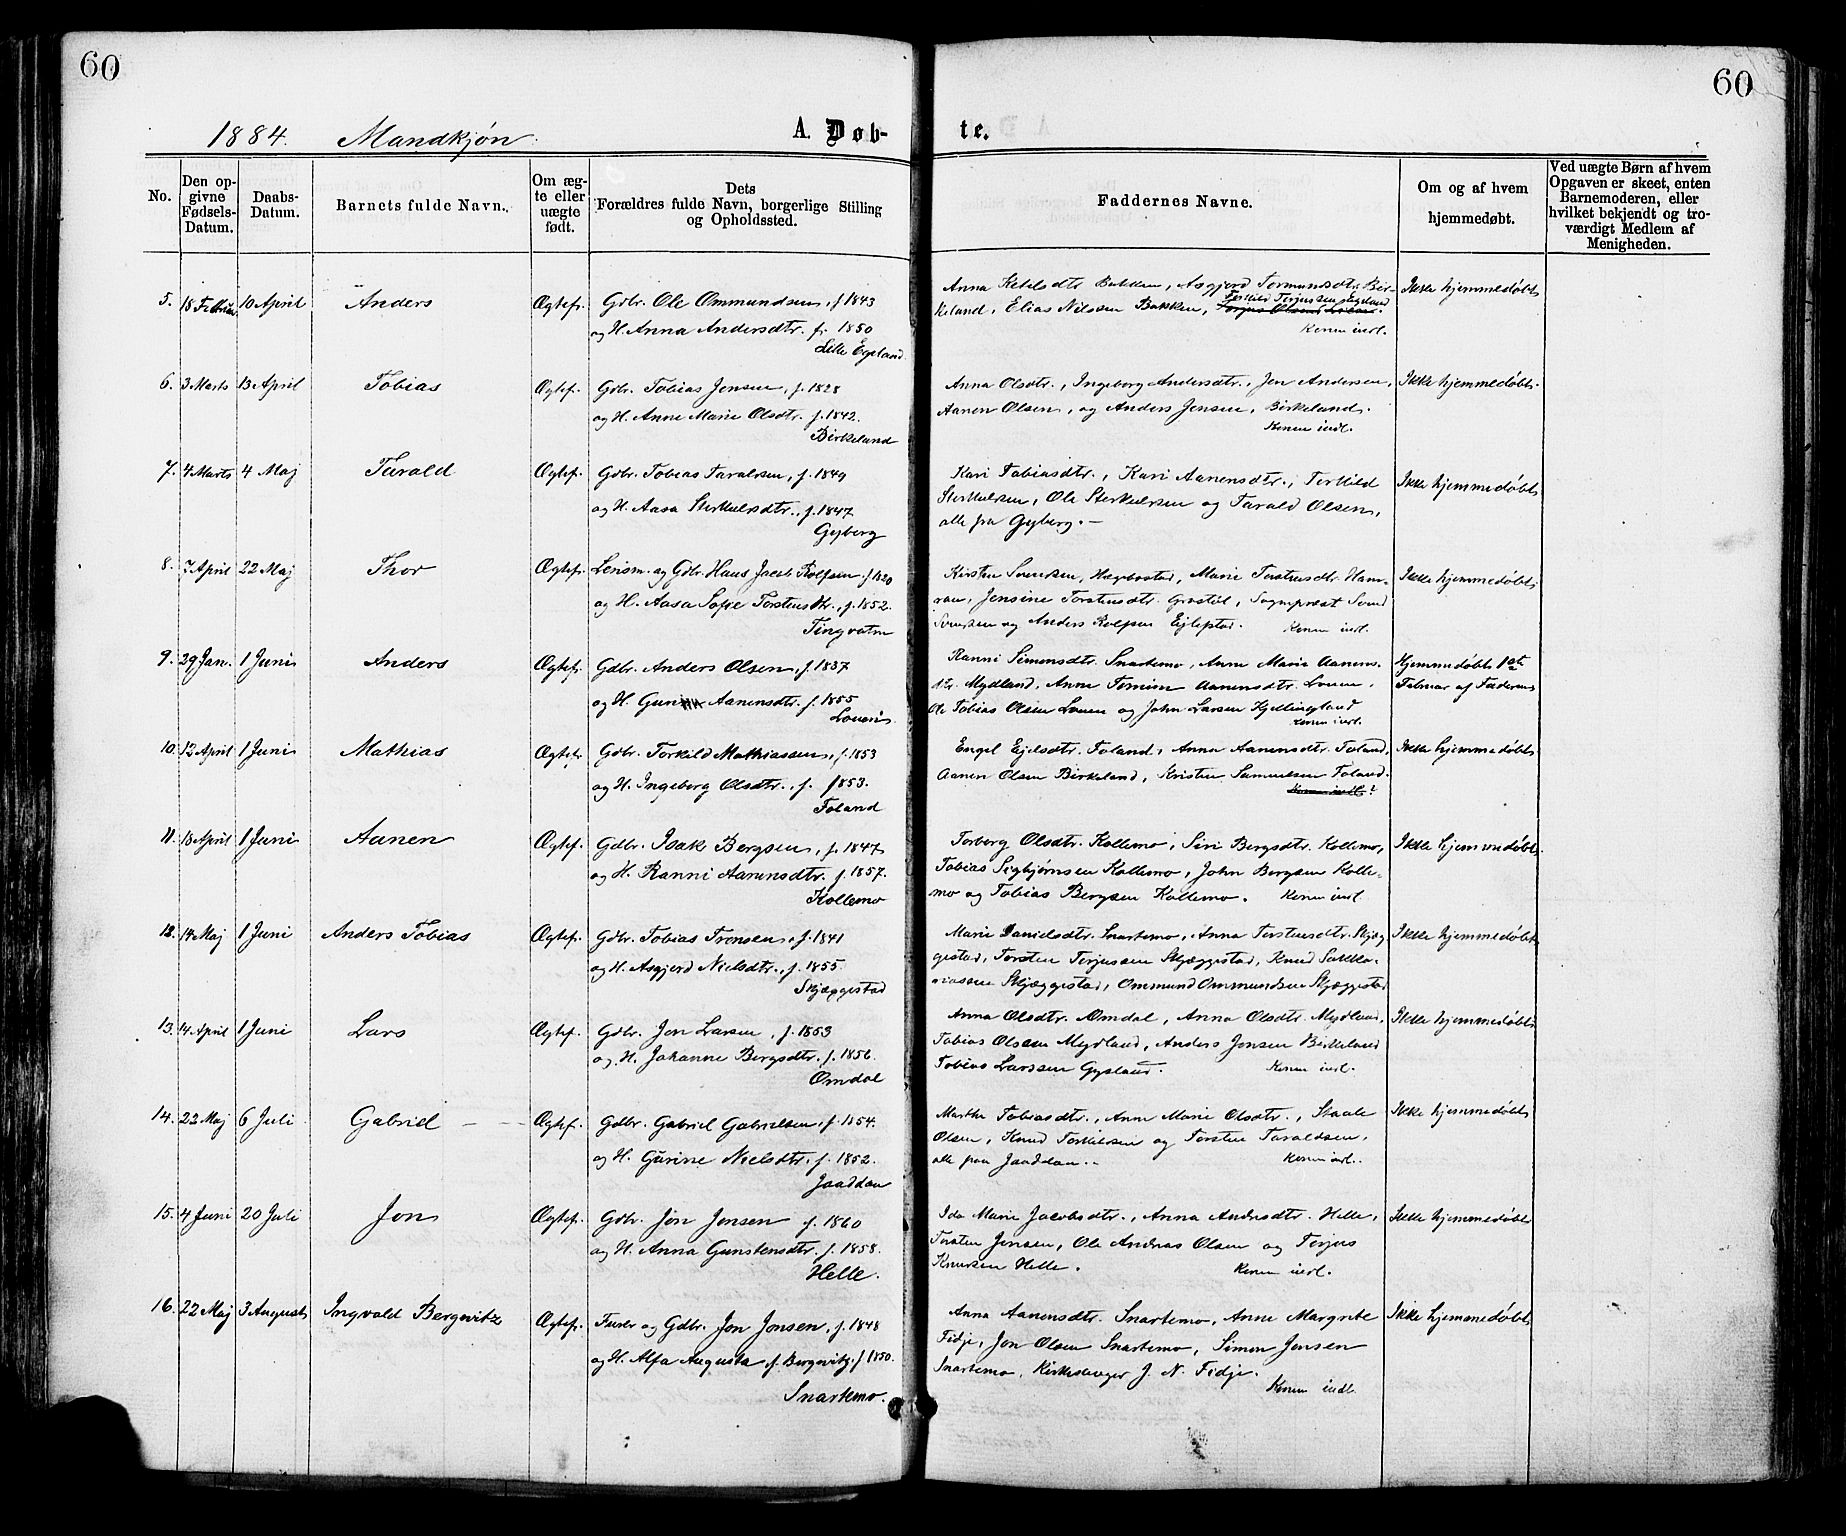 60
60
1884. Mandkjøn.
A. Døb-
te.
No.
Den op-
givne
Fødsels-
Datum.
Daabs-
Datum.
Barnets fulde Navn.
Om æg-
te eller
uægte
født.
Dets
Forældres fulde Navn, borgerlige Stilling
og Opholdssted.
Faddernes Navne.
Om og af hvem
hjemmedøbt.
Ved uægte Børn af hvem
Opgaven er skeet, enten
Barnemoderen, eller
hvilket bekjendt og tro-
værdigt Medlem af
Menigheden.
5. 18 Februar 10 April Anders Ægtef. Gdbr. Ole Ommundsen, f. 1843
og H. Anna Andersdtr. f. 1850
Lille Egeland.
Anna Ketilsdtr Bakken, Asgjerd Tormundsdtr. Bir-
keland, Elias Nilssen Bakken, Terkild Terjussen Egeland
Konen indl.
Ikke hjemmedøbt
6. 3 Marts 13 April Tobias Ægtef. Gdbr. Tobias Jensen, f. 1828
og H. Anne Marie Olsdtr. f. 1842.
Birkeland
Anna Olsdtr., Ingeborg Andersdtr., Jon Andersen,
Aanen Olsen, og Anders Jensen, Birkeland.
Konen indl.
Ikke hjemmedøbt.
7. 4 Marts 4 Maj Tarald Ægtef. Gdbr. Tobias Taraldsen, f. 1849
og H. Aasa Sterkulsdtr., f. 1847
Gyberg
Kari Tobiasdtr., Kari Aanensdtr., Terkild
Sterkulsen, Ole Sterkulsen og Tarald Olsen,
alle fra Gyberg. —
Ikke hjemmedøbt
8. 7 April 22 Maj Thor Ægtef. Lensm. og Gdbr. Hans Jacob Rolfsen f. 1820
og H. Aasa Sofie Torstensdtr., f. 1852.
Tingvatn
Kirsten Svendsen, Hægebostad, Marie Torstensdtr. Ham-
ran, Jensine Torstensdtr. Grostøl, Sognepræst Svend
Svendsen og Anders Rolfsen Eiglestad. Konen indl.
Ikke hjemmedøbt
9. 29 Jan. 1 Juni Anders Ægtef. Gdbr. Anders Olsen, f. 1837
og H. Gun Aanensdtr. f. 1855
Louen.
Ranni Simensdtr. Snartemo, Anne Marie Aanens-
dtr. Mydland, Anne Tomine Aanensdtr. Louen,
Ole Tobias Olsen Louen og John Larsen Kjellingland
Konen indl.
Hjemmedøbt 1ste
Februar af Faderen
10. 12 April 1 Juni Mathias Ægtef. Gdbr. Torkild Mathiassen, f. 1853
og H. Ingeborg Olsdtr., f. 1853.
Foland
Engel Ejelsdtr. Foland, Anna Aanensdtr. Foland,
Aanen Olsen Birkeland, Kristen Samuelsen Foland.
Konen indl.
Ikke hjemmedøbt
11. 13 April 1 Juni Aanen Ægtef. Gdbr. Isak Bergsen, f. 1847
og H. Ranni Aanensdtr. f. 1857.
Kollemo
Torborg Olsdtr. Kollemo, Siri Bergsdtr. Kollemo,
Tobias Sigbjørnsen Kollemo, John Bergsen Kolle-
mo og Tobias Bergsen Kollemo. Konen indl.
Ikke hjemmedøbt.
12. 14 Maj 1 Juni Anders Tobias Ægtef. Gdbr. Tobias Tronsen, f. 1841
og H. Asgjerd Nielsdtr., f. 1855.
Skjæggestad
Marie Danielsdtr. Snartemo, Anna Torstensdtr. Skjæg-
gestad, Torsten Terjussen Skjæggestad, Knud Sakka-
riassen Skjæggestad, Ommund Ommundsen Skjæggestad
Ikke hjemmedøbt
13. 14 April 1 Juni Lars Ægtef. Gdbr. Jon Larsen, f. 1853
og H. Johanne Bergsdtr. f. 1856.
Omdal
Anna Olsdtr. Omdal, Anna Olsdtr. Mydland,
Tobias Olsen Mydland, Anders Jensen Birkeland
Tobias Larssen Gysland. Konen indl.
Ikke hjemmedøbt
14. 22 Maj 6 Juli Gabriel Ægtef. Gdbr. Gabriel Gabrielsen, f. 1854.
og H. Gurine Nielsdtr. f. 1852.
Jaaddan
Martha Tobiasdtr., Anne Marie Olsdtr., Staale
Olsen, Knud Torkildsen og Torsten Taraldsen,
alle paa Jaaddan. Konen indl.
Ikke hjemmedøbt
15. 4 Juni 20 Juli Jon Ægtef. Gdbr. Jon Jensen f. 1860
og H. Anna Gunstensdtr. f. 1858.
Helle.
Ida Marie Jacobsdtr., Anna Andersdtr. Helle,
Torsten Jensen, Ole Andreas Olsen og Terjus
Knudsen Helle. Konen indl.
Ikke hjemmedøbt
16. 22 Maj 3 August Ingvald Bergwitz Ægtef. Furer og Gdbr. Jon Jonsen, f. 1848
og H. Alfa Augusta f. Bergwitz, f. 1850.
Snartemo.
Anna Aanensdtr. Snartemo, Anne Margrete
Fidje, Jon Olsen Snartemo, Simon Jensen
Snartemo, Kirkesanger J. N. Fidje.
Konen indl.
Ikke hjemmedøbt